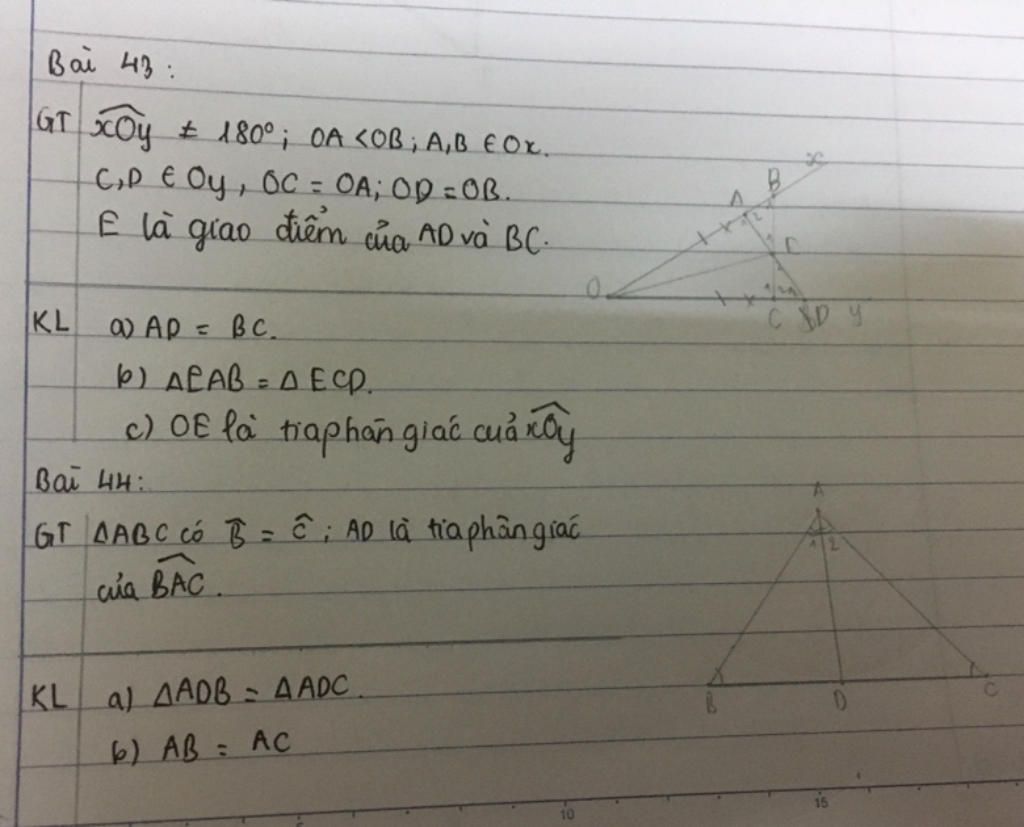 Bài 43:
GT xOy ≠ 180°; OA < OB; A, B ∈ Ox.
C, D ∈ Oy, OC = OA; OD = OB.
E là giao điểm của AD và BC.
x
B
A
1 2
E
O
C D y
KL a) AD = BC.
b) ΔEAB = ΔECD.
c) OE là tia phân giác của xOy
Bài 44:
A
GT ΔABC có B̂ = Ĉ; AD là tia phân giác
1 2
của BAC.
KL a) ΔADB = ΔADC.
B D C
b) AB = AC
10 15